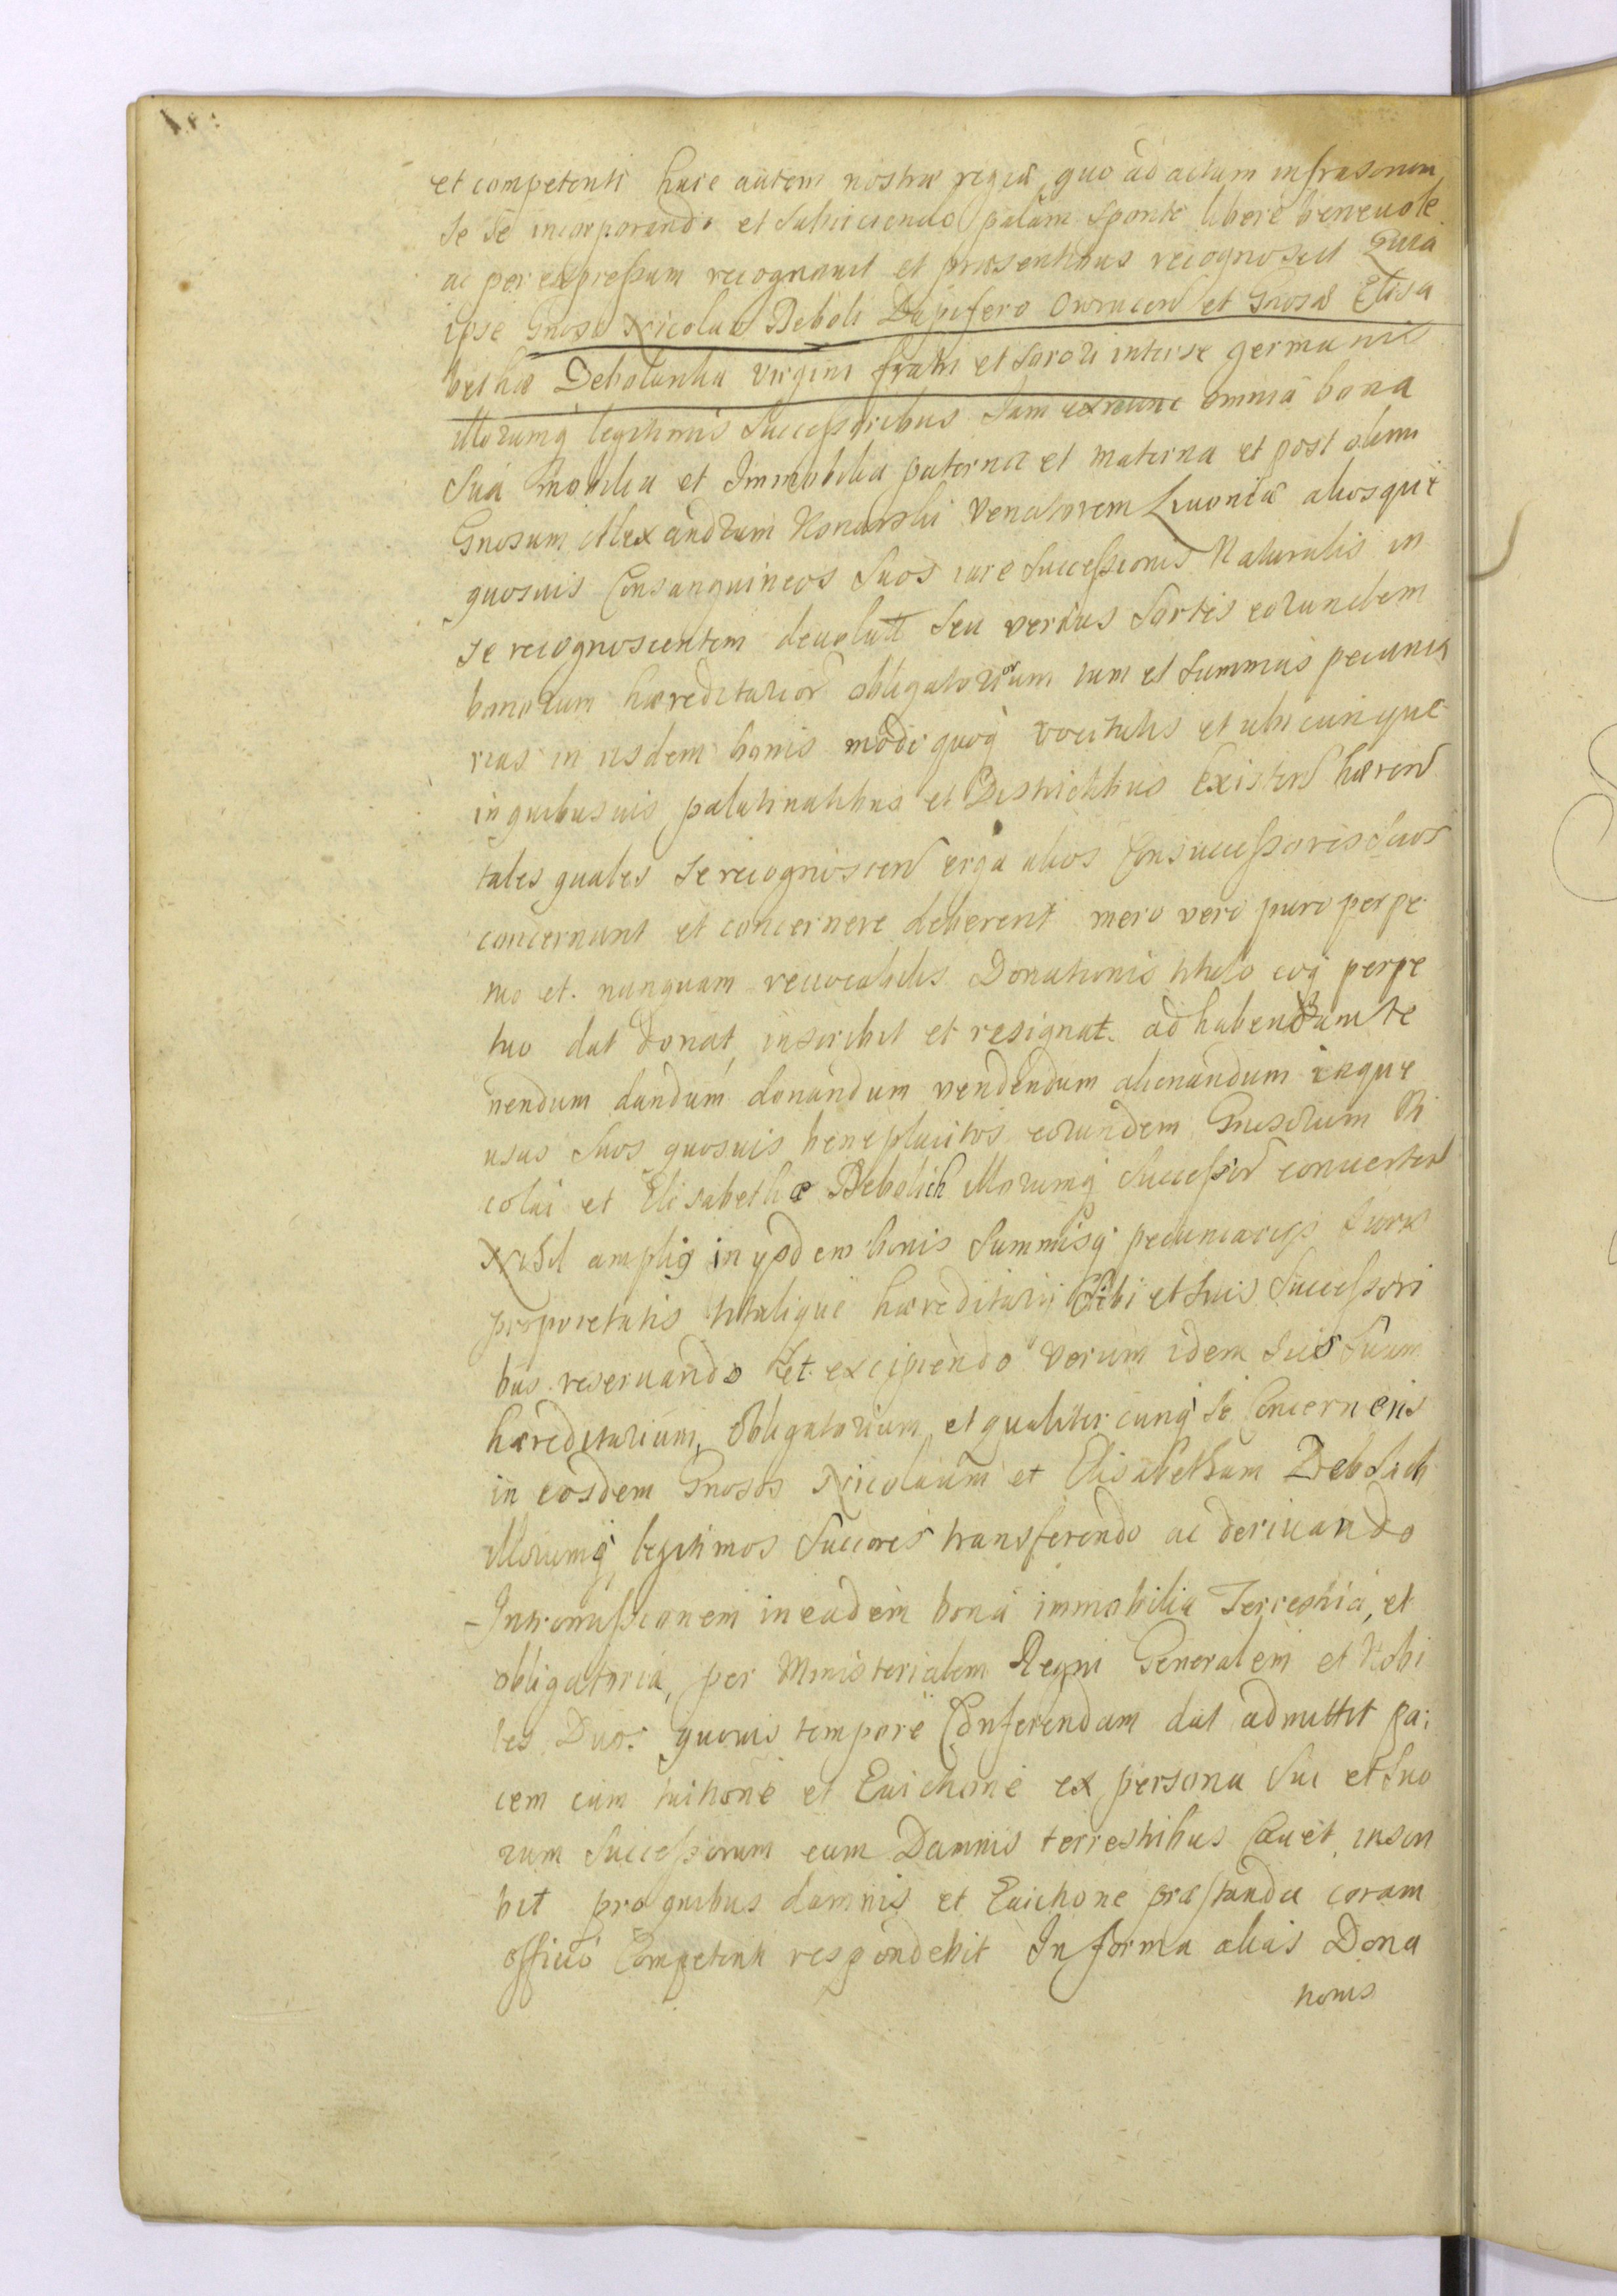 et competenti huic autem nostræ regiæ, quo ad actum infrascrium
se se incorporando et subiiciendo palam sponte libere beneuole
ac per expressum recognouit et præsentibus recognoscit Quia
ipse Gnoso Nicolao Deboli Dapifero Owrucen et Gnosæ Elisa
bethæ Debolanka virgini fratri et sorori inter se germanis
Illorumq legitimis Successoribus Iam exnunc omnia bona
sua mobilia et Immobilia paterna et materna et post olim
Gnosum Alexandrum Konarski Venatorem Liuoniæ aliosque
quosuis Consanguineos suos iure Successionis Naturalis in
se recognoscentem deuolutt seu verius Sortes eorundem
bonorum hæreditarior obligatoriorum tum et summas pecunia
rias in iisdem bonis modo quoq vocitatis et ubicunque
in quibusuis palatinatibus et Districtibus existen hæren
tales quales se recognoscen erga alios Consuccessores suos
concernunt et concernere deberent mero vero puro perpe
tuo et nunquam reuocabilis Donationis titulo eoq perpe
tuo dat donat, inscribit et resignat. ad habendum te
nendum dandum donandum vendendum alienandum inque
usus suos quosuis beneplacitos eorundem Gnosorum Ni
colai et Elisabethæ Debolich Illorumq Successor conuerten
Nihil amplig in ysdem bonis summisq pecuniarys Iuris
proprietatis titulique hæreditary Sibi et suis Successori
bus reseruando et excipiendo Verum idem Ius suum
hæreditarium, Obligatorium et qualitercunq se Concernens
in eosdem Gnosos Nicolaum et Elisabetham Debolich
Illorumq legitimos Succores transferendo ac deriuando
Intromissionem in eadem bona immobilia Terrestria, et
obligatoria, per Ministerialem Regni Generalem et Nobi
les Duos quouis tempore Conferendam dat admittit pa:
cem cum tuitione et Euictione ex persona sui et suo
rum Successorum cum Damnis terrestribus Cauet, inscri
bit pro quibus damnis et Euictione præstanda coram
officio Competenti respondebit In forma alias Dona
tionis